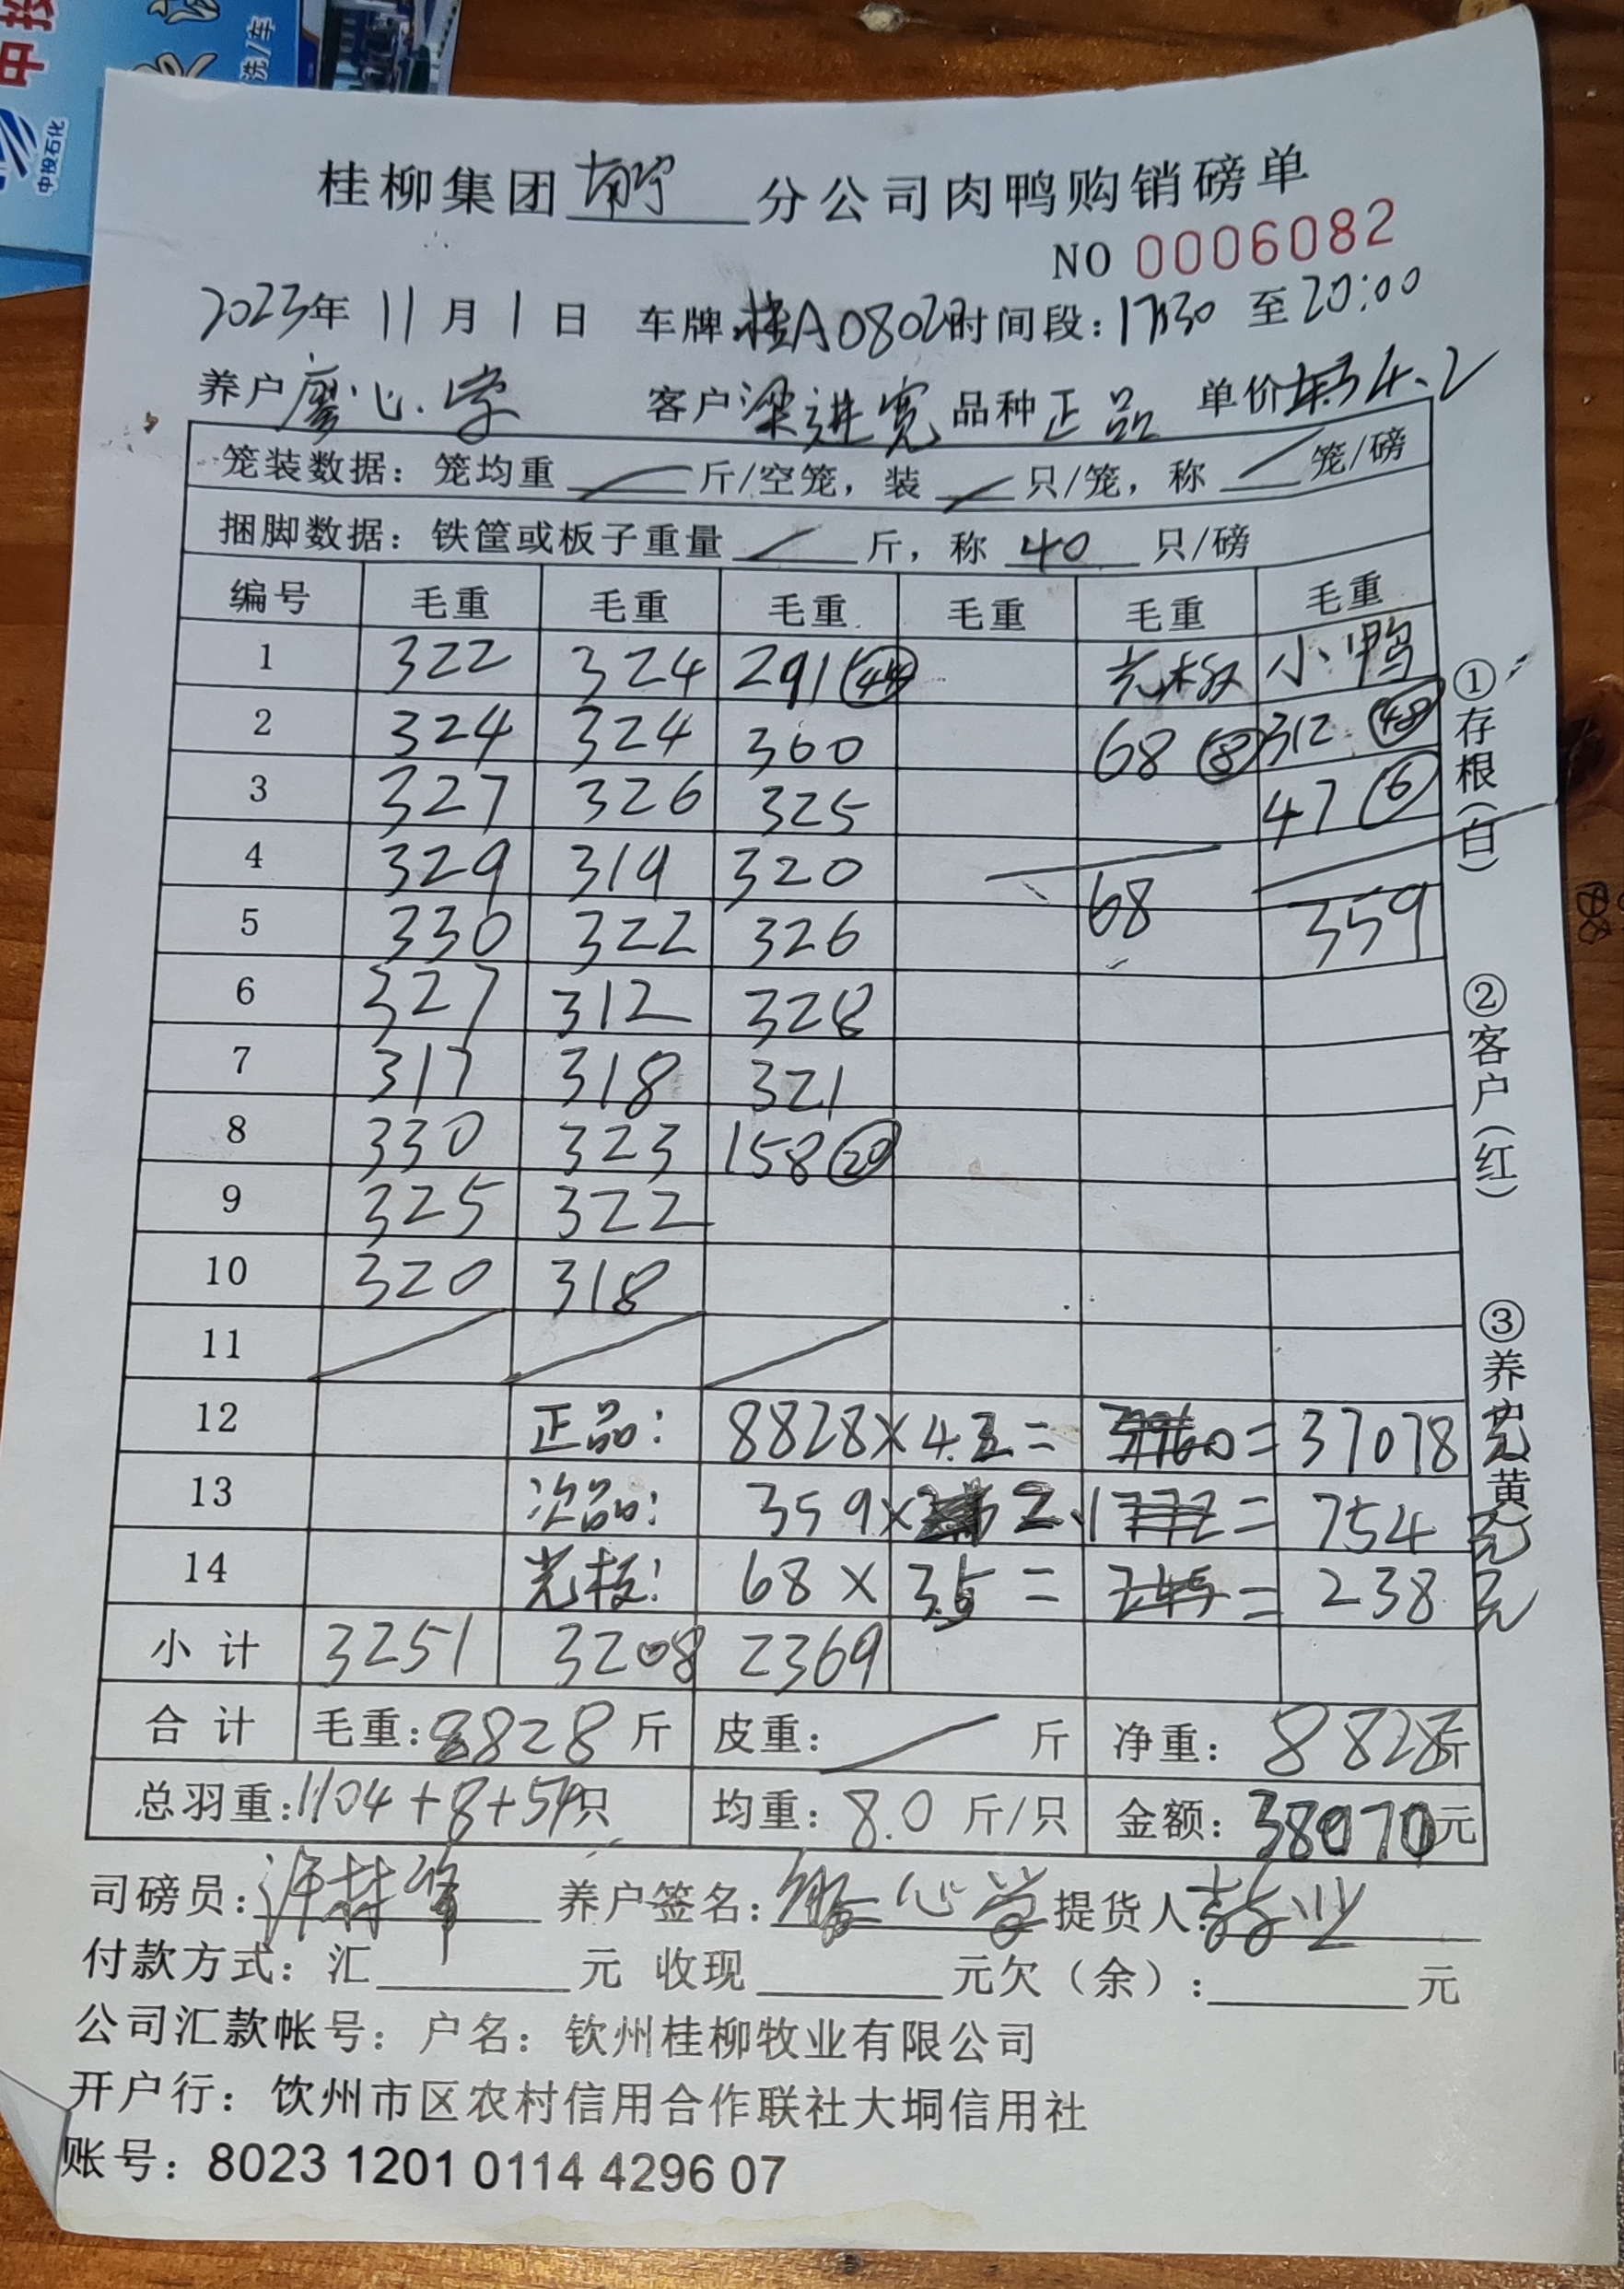 中投石化
洗/车
桂柳集团南宁分公司肉鸭购销磅单
NO 0006082
2023年 11月 1日 车牌:桂A0802 时间段:17:30 至20:00
养户 廖心学 客户 梁进宽 品种 正品 单价 4.2
笼装数据:笼均重 / 斤/空笼,装 / 只/笼,称 / 笼/磅
捆脚数据:铁筐或板子重量 / 斤,称 40 只/磅
编号 毛重 毛重 毛重 毛重 毛重 毛重
1 322 324 291(44) 光板 小鸭
2 324 324 360 68(8) 312(48)
3 327 326 325 47(6)
4 329 319 320
5 330 322 326 68 359
6 327 312 328
7 317 318 321
8 330 323 158(20)
9 325 322
10 320 318
11
12 正品: 8828×4.2= = 37078元
13 次品: 359× 2.1 = 754元
14 光板: 68×3.5= = 238元
小计 3251 3208 2369
合计 毛重:8828斤 皮重: / 斤 净重:8828斤
总羽重:1104+8+54只 均重:8.0斤/只 金额:38070元
①存根(白)
②客户(红)
③养户(黄)
司磅员: 养户签名:廖心学 提货人:
付款方式:汇 元 收现 元欠(余): 元
公司汇款帐号:户名:钦州桂柳牧业有限公司
开户行:饮州市区农村信用合作联社大垌信用社
账号:8023 1201 0114 4296 07